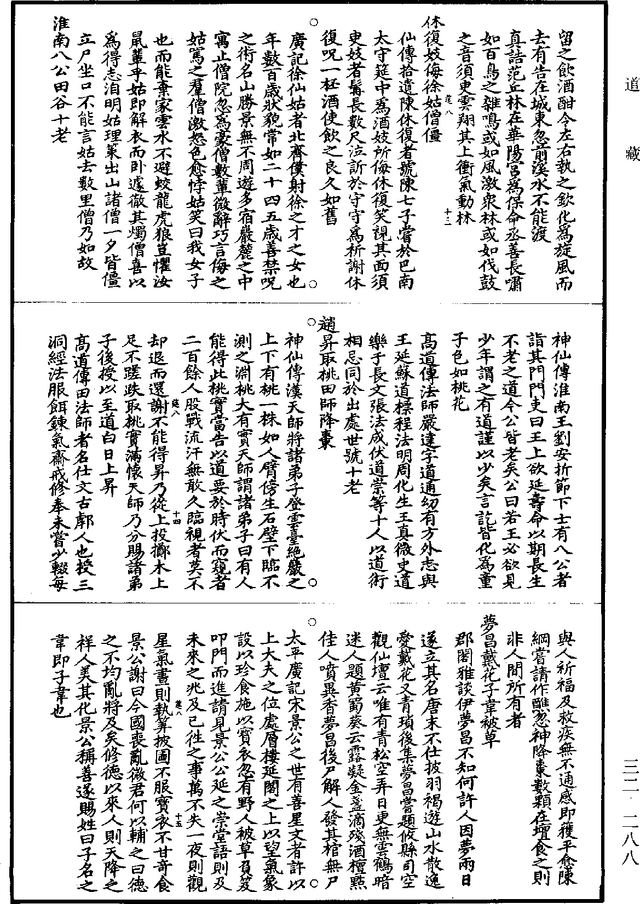 道藏
留之飲酒酣令左右執之欽化爲旋風而
去有告在城東忽前溪水不能渡
真誥范丘林在華陽宮爲保命丞善長嘯
如百鳥之雜鳴或如風激衆林或如伐鼓
之音須臾雲翔其上衝氣動林
休復妓侮徐姑僧僵
仙傳拾遺陳休復者號陳七子嘗於巴南
太守筵中爲酒妓所侮休復笑說其面須
臾妓者髯長數尺泣訴於守守爲祈謝休
復呪一杯酒使飲之良久如舊
廣記徐仙姑者北齊僕射徐之才之女也
年數百歲狀貌常如二十四五歲善禁呪
之術名山勝景無不周遊多宿巖麓之中
寓止僧院忽爲豪僧數輩微辭巧言侮之
姑罵之羣僧激怒色愈悖姑笑曰我女子
也而能棄家雲水不避蛟龍虎狼豈懼汝
鼠輩乎姑即解衣而卧遽徹其燭僧喜以
爲得志洎明姑理策出山諸僧一夕皆僵
立尸坐口不能言姑去數里僧乃如故
淮南八公田谷十老
神仙傳淮南王劉安折節下士有八公者
詣其門門吏曰王上欲延壽命以期長生
不老之道今公皆老矣公曰若王必欲見
少年謂之有道謹以少矣言訖皆化爲童
子色如桃花
高道傳法師嚴達字道通幼有方外志與
王延蘇道標程法明周化生王真微史道
樂于長文張法成伏道崇等十人以道術
相忌同於出處世號十老
趙昇取桃田師降棗
神仙傳漢天師將諸弟子登雲臺絕巖之
上下有桃一株如人臂傍生石壁下臨不
測之淵桃大有實天師謂諸弟子曰有人
能得此桃實當告以道要於時伏而窺者
二百餘人股戰流汗無敢久臨視者莫不
却退而還謝不能得昇乃從上投擲木上
足不蹉跌取桃實滿懷天師乃分賜諸弟
子後授以至道白日上昇
高道傳田法師者名仕文古鄣人也授三
洞經法服餌鍊氣齋戒修奉未嘗少輟每
與人祈福及救疾無不通感即獲平愈陳
綱嘗請作醮忽神降棗數顆在壇食之則
非人間所有者
夢昌戴花子韋被草
郡閣雅談伊夢昌不知何許人因夢兩日
遂立其名唐末不仕披羽褐遊山水散逸
愛戴花又青瑣後集夢昌嘗題攸縣司空
觀仙壇云唯有青松空弄日更無雲鶴暗
迷人題黃蜀葵云露凝金盞滴殘酒檀點
佳人噴異香夢昌後尸解人發其棺無尸
太平廣記宋景公之世有善星文者許以
上大夫之位處層樓延閣之上以望氣象
設以珍食施以寳衣忽有野人被草負笈
叩門而進請見景公公延之崇堂語則及
未來之兆及已徃之事萬不失一夜則觀
星氣晝則執筭披圖不服寳衣不甘竒食
景公謝曰今國喪亂微君何以輔之曰德
之不均亂將及矣修德以來人則天降之
祥人美其化景公稱善遂賜姓曰子名之
韋即子韋也
三二·二八八